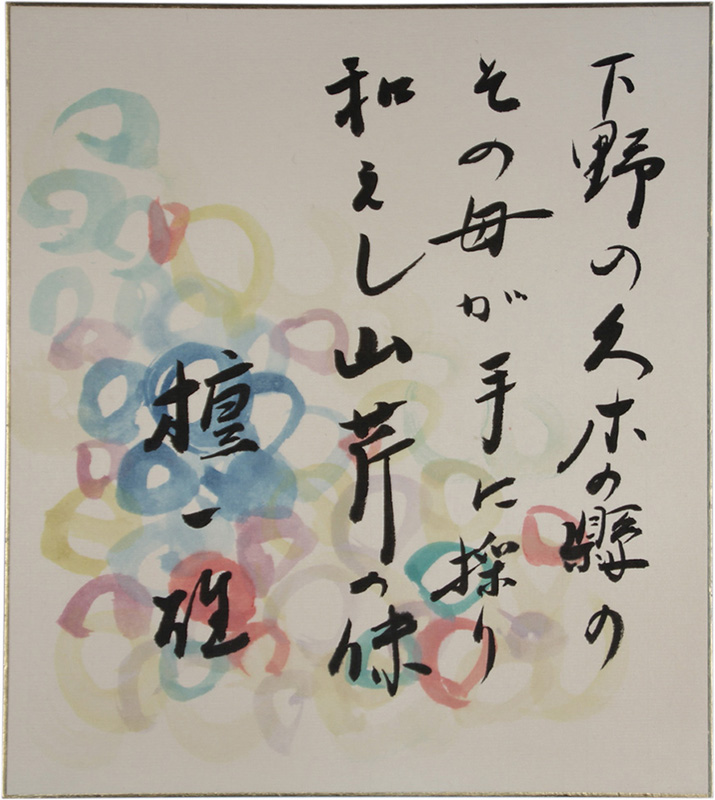 下野の久木の縣の
その母が手に採り
和えし山芹の味
檀一雄